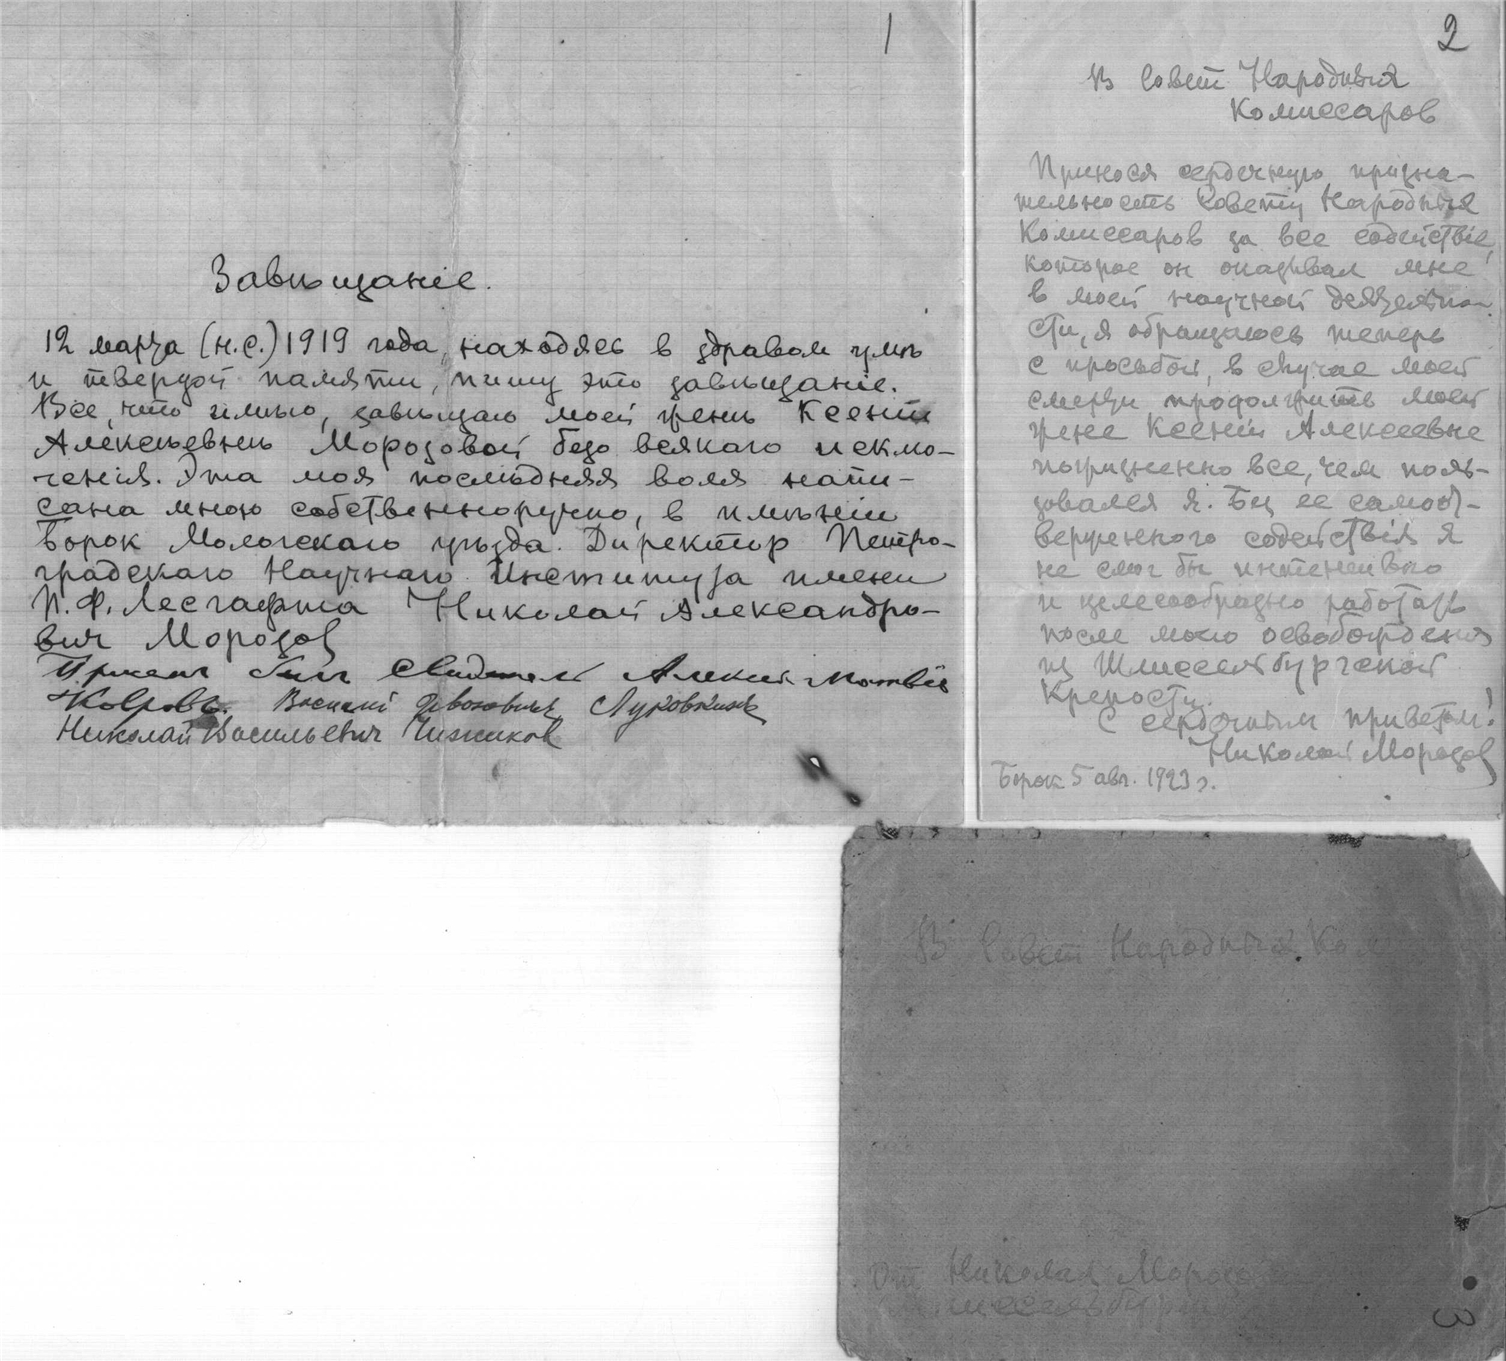 1
Завѣщаніе.
12 марта (н.с.) 1919 года, находясь в здравом умѣ
и твердой памяти, пишу это завѣщаніе.
Все, что имѣю, завѣщаю моей женѣ Ксеніи
Алексѣевнѣ Морозовой безо всякаго исклю-
ченія. Эта моя послѣдняя воля напи-
сана мною собственноручно, в имѣніи
Борок Мологскаго уѣзда. Директор Петро-
градскаго Научнаго Института имени
П. Ф. Лесгафта Николай Александро-
вич Морозов
При сем был Свидетель Алексей Матвеев
Василий Лукозкинъ
Николай Васильевич Чижиков
2
В Совет Народных
Комиссаров
Принося сердечную призна-
тельность Совету Народных
Комиссаров за все содействіе,
которое он оказывал мне
в моей научной деятельно-
сти, я обращаюсь теперь
с просьбой, в случае моей
смерти продолжить моей
жене Ксеніи Алексеевне
пожизненно все, чем поль-
зовался я. Без ее самоот-
верженного содействія я
не смог бы интенсивно
и целесообразно работать
после моего освобожденія
из Шлиссельбургской
Крепости.
С сердечным приветом!
Николай Морозов
Борок 5 авг. 1923 г.
В Совет Народных Ком
От Николая Морозо
Шлиссельбург
3